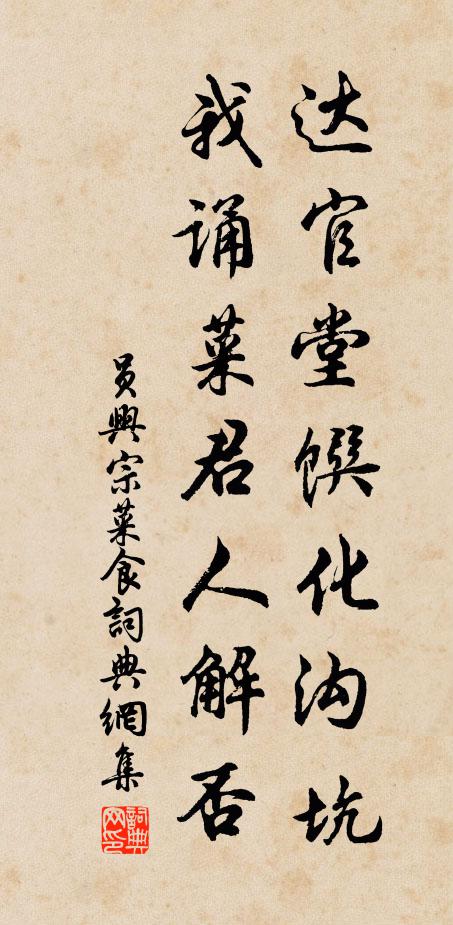 达官堂馔化沟坑
我诵菜君人解否
员興宗菜食詞典網集
詞典网印